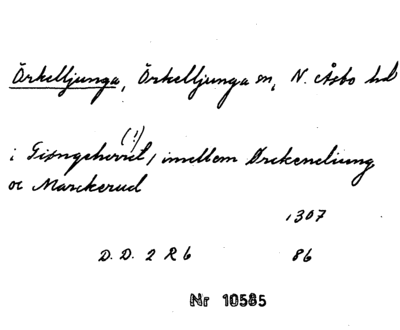 Örkelljunga, Örkelljunga sn, N. Åsbo hd
(!)
i Giøngeherrit, imellem Ørckeneliung
oc Marckerud
1307
D. D. 2 R 6 86
Nr 10585